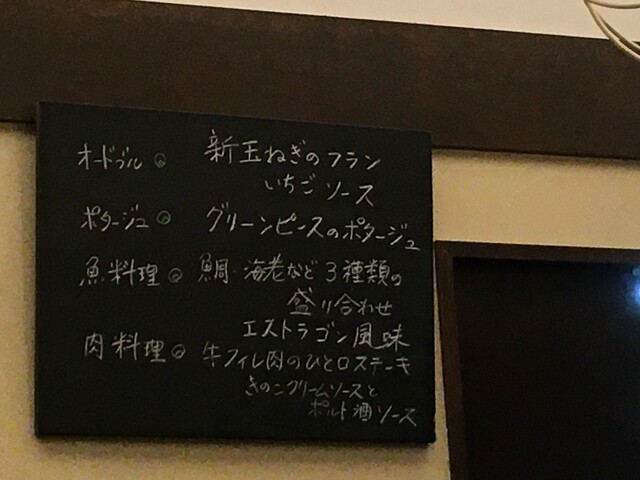 オードブル 新玉ねぎのフラン
いちごソース
ポタージュ グリーンピースのポタージュ
魚料理 鯛・海老など3種類の
盛り合わせ
エストラゴン風味
肉料理 牛フィレ肉のひと口ステーキ
きのこクリームソースと
ポルト酒ソース